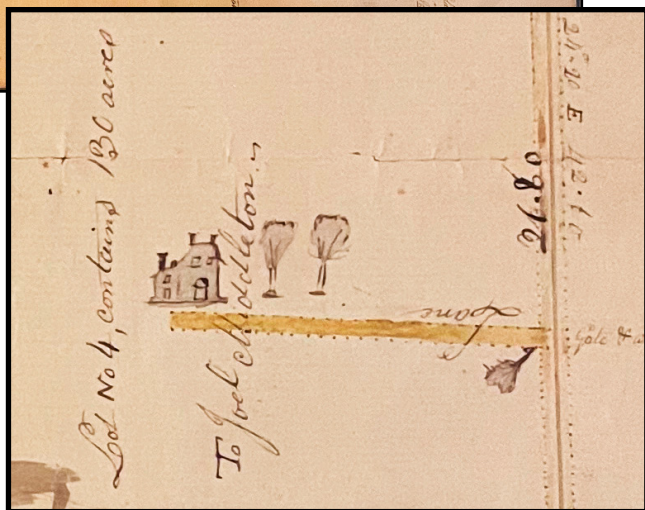 Lot No 4, contains 130 acres
To Joel Middleton
Lane
E
Gate &